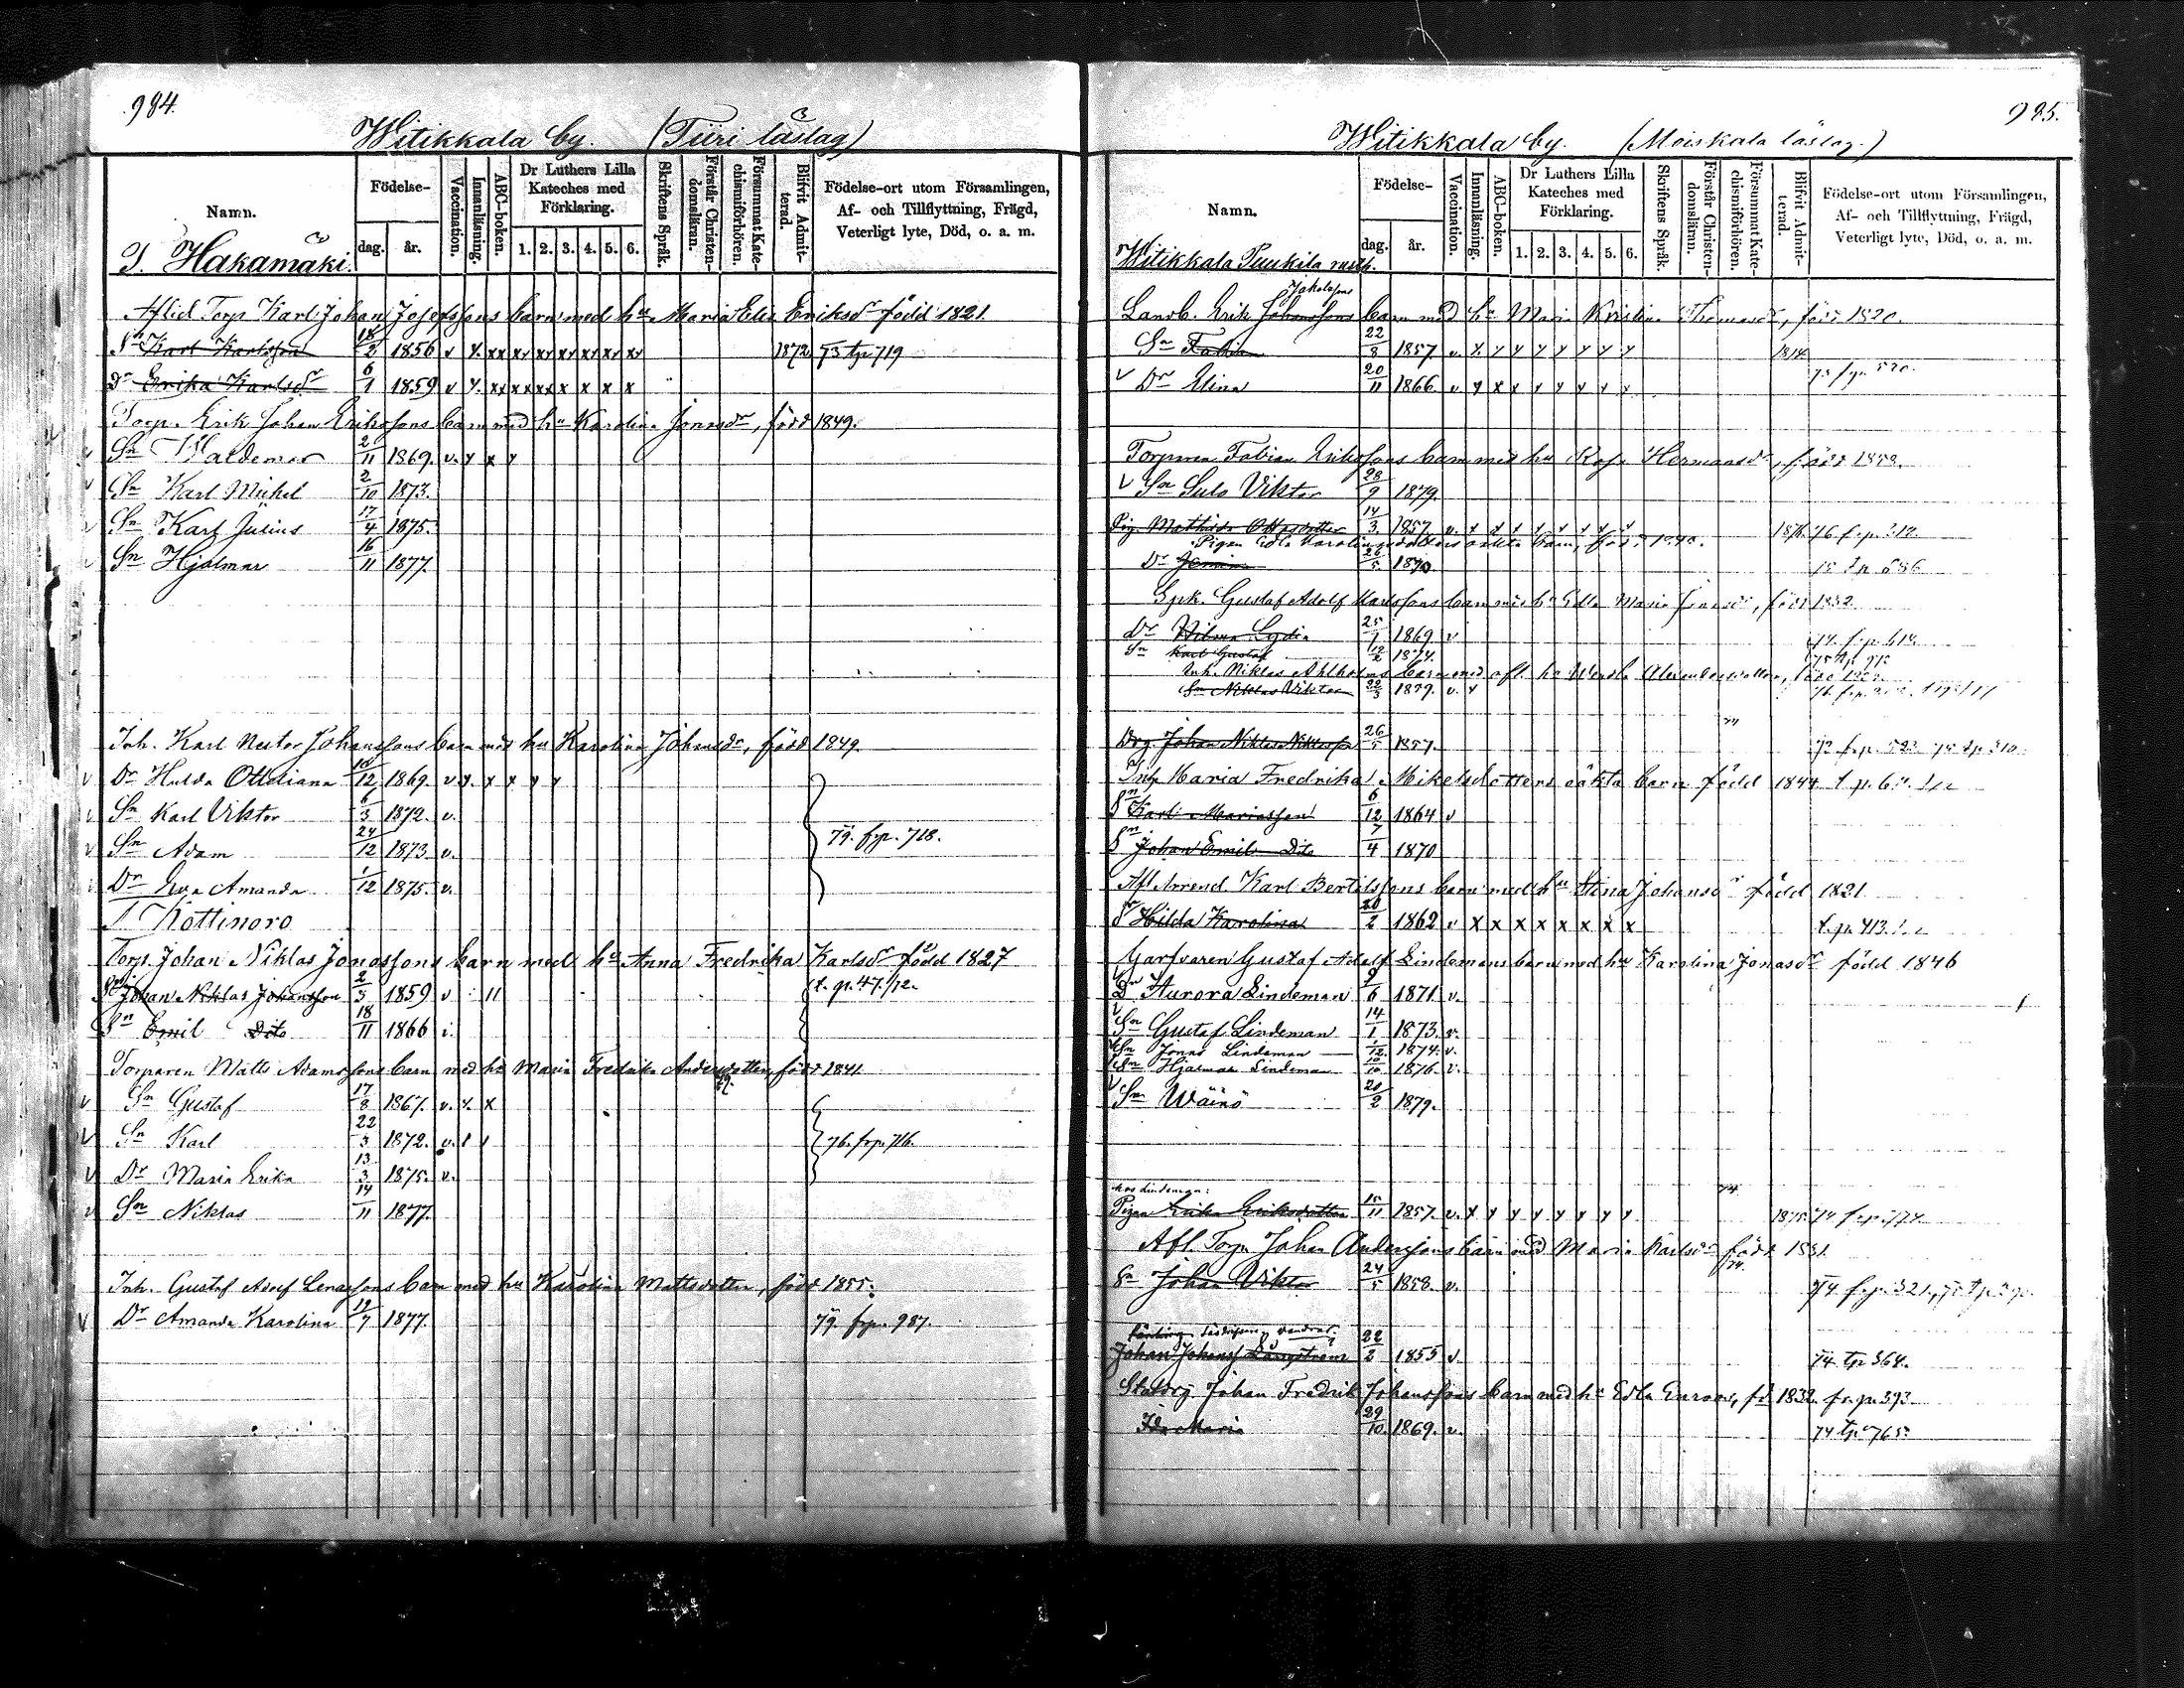 984.
Witikkala by. (Tiiri läslag)
Namn.
Födelse-
dag. år.
Vaccination.
Innanläsning.
ABC-boken.
Dr Luthers Lilla Kateches med Förklaring.
1. 2. 3. 4. 5. 6.
Skriftens Språk.
Förstår Christendomsläran.
Försummat Katechismiförhören.
Blifvit Admitterad.
Födelse-ort utom Församlingen, Af- och Tillflyttning, Frägd, Veterligt lyte, Död, o. a. m.
T. Hakamäki.
Aflid Torp Karl Johan Josefssons barn med hu Maria Elis. Eriksdr född 1821.
Sn Karl Karlsson 18/2 1856 v x xx xx xx xx xx xx xx 1872 73 tp 719
Dr Erika Karlsdr 6/1 1859 v x xx xx xx x x x x
Torp. Erik Johan Erikssons barn med hu Karolina Jonasdr, född 1849.
Sn Waldemar 2/11 1869. v. x x x
Sn Karl Mickel 2/10 1873.
Sn Karl Julius 17/4 1875.
Sn Hjalmar 16/11 1877.
Inh. Karl Nestor Johanssons barn med hu Karolina Johansdr, född 1849.
Dr Hulda Ottiliana 10/12 1869. v x. x x x x
Sn Karl Viktor 6/3 1872. v.
Sn Adam 24/12 1873 v. 79. frp. 718.
Dr Eva Amanda 1/12 1875. v.
T. Kottinoro
Torp. Johan Niklas Jonassons barn med hu Anna Fredrika Karlsdr född 1827
Sn Johan Niklas Johansson 2/3 1859 v t. p. 47. 1/12.
Sn Emil Dito 18/11 1866
Torparen Matts Adamssons barn med hu Maria Fredrika Andersdotter, född 1841
Sn Gustaf 17/8 1867. v. x. x
Sn Karl 22/3 1872. v. 76. frp. 716.
Dr Maria Erika 13/3 1875. v.
Sn Niklas 14/11 1877.
Inh. Gustaf Adolf Lenassons barn med hu Karolina Mattsdotter, född 1855.
Dr Amanda Karolina 19/7 1877. 79. frp. 987.
985.
Witikkala by. (Moiskala läslag.)
Namn.
Födelse-
dag. år.
Vaccination.
Innanläsning.
ABC-boken.
Dr Luthers Lilla Kateches med Förklaring.
1. 2. 3. 4. 5. 6.
Skriftens Språk.
Förstår Christendomsläran.
Försummat Katechismiförhören.
Blifvit Admitterad.
Födelse-ort utom Församlingen, Af- och Tillflyttning, Frägd, Veterligt lyte, Död, o. a. m.
Witikkala Puukila rusth.
Jakobssons
Landb. Erik Johanssons barn med hu Maria Kristina Thomasdr, född 1820.
Sn Fabian 22/8 1857. v. x y y y y y y y
Dr Elina 20/11 1866. v y x y y y y y y
Torpmn Fabian Erikssons barn med hu Rosa Hermansdr, född
Sn Sulo Viktor 28/9 1879.
Pig. Mathilda Ottosdotter 14/3 1857. v. 76 frp.
Pigan Edla Karolinasdotters oäkta barn, född
Dr 26/5 1870.
Spk. Gustaf Adolf Karlssons barn med hu Edla Maria Jonasdr, född 1832
Dr Wilma Lydia 25/1 1869 v
Sn Karl Gustaf 1874.
Inh. Niklas Ahlholms barn med afl. hu
Sn Niklas Viktor
Drg. Johan Niklas Niklasson 26/5 1857.
Maria Fredrika Mikelsdotters oäkta barn född 1844
Sn Karl Mariasson 6/12 1864 v
Sn Johan Emil Dito 7/4 1870
Afl. Arrend. Karl Bertilssons barn med hu Stina Johansdr född 1821
Dr Hilda Karolina 20/2 1862 v x x x x x x x x t. p. 413.
Garfvaren Gustaf Adolf Lindemans barn med hu Karolina Jonasdr född 1846
Dr Aurora Lindeman 9/6 1871 v.
Sn Gustaf Lindeman 14/1 1873. v.
Sn Jonas Lindeman 1/12. 1874. v.
Sn Hjalmar Lindeman 10/10 1876. v.
Sn Wäinö 20/2 1879.
hos Lindeman:
Pigan Erika Eriksdotter 15/11 1857. v. x y y y y y y y 1875
Afl. Torp. Johan Anderssons barn med Maria Karlsdr född 1831.
Sn Johan Viktor 24/5 1858. v. 74. frp. 321.
Johan Johanss Långström 22/2 1855 v. 74 tp 364.
Statdrg. Johan Fredrik Johanssons barn med hu Edla Euroos, fd. 1832. fr. p. 393.
Ida Maria 29/10. 1869. v. 74 tp. 765.